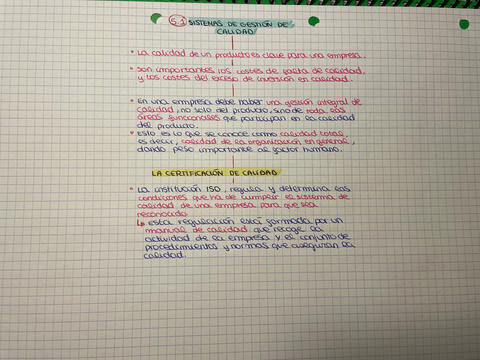 5.1 SISTEMAS DE GESTIÓN DE
CALIDAD
• La calidad de un producto es clave para una empresa.
• Son importantes los costes de falta de calidad,
y los costes del exceso de inversión en calidad.
• En una empresa debe haber una gestión integral de
calidad, no solo del producto, sino de toda las
áreas funcionales que participan en la calidad
del producto.
• Esto es lo que se conoce como calidad total,
es decir, calidad de la organización en general,
dando peso importante al factor humano.
LA CERTIFICACIÓN DE CALIDAD
• La institución ISO, regula y determina las
condiciones que ha de cumplir el sistema de
calidad de una empresa para que sea
reconocido
↳ esta regulación está formada por un
manual de calidad que recoge la
actividad de la empresa y el conjunto de
procedimientos y normas que aseguran la
calidad.